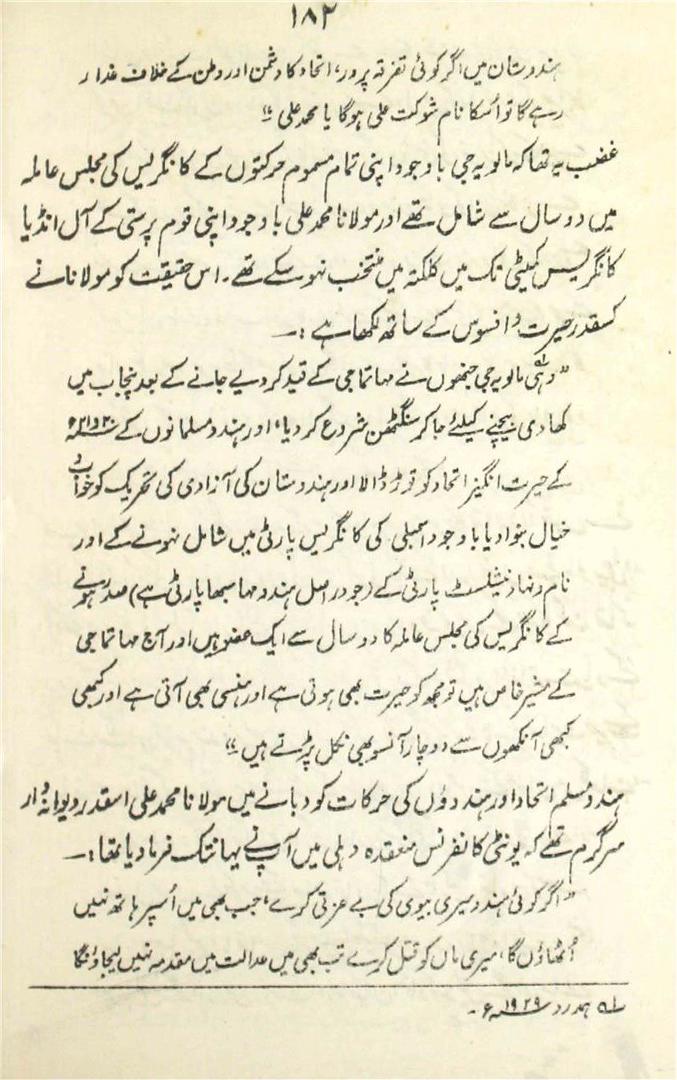 ۱۸۲
ہندوستان میں اگر کوئی تفرقہ پرور، اتحاد کا دشمن اور وطن کے خلاف غدار
رہے گا تو اُسکا نام شوکت علی ہوگا یا محمد علی "
غضب یہ تھا کہ مالویہ جی باوجود اپنی تمام مسموم حرکتوں کے کانگریس کی مجلس عاملہ
میں دو سال سے شامل تھے اور مولانا محمد علی باوجود اپنی قوم پرستی کے آل انڈیا
کانگریس کمیٹی تک میں کلکتہ میں منتخب نہو سکے تھے۔ اس حقیقت کو مولانا نے
کسقدر حیرت و افسوس کے ساتھ لکھا ہے :۔
"وہی مالویہ جی جنھوں نے مہاتما جی کے قید کر دیے جانے کے بعد پنجاب میں
کھادی بیچنے کیلئے جا کر سنگٹھن شروع کر دیا، اور ہندو مسلمانوں کے ۲۰ و ۲۱ء
کے حیرت انگیز اتحاد کو توڑ ڈالا اور ہندوستان کی آزادی کی تحریک کو خواب و
خیال بنوا دیا باوجود اسمبلی کی کانگریس پارٹی میں شامل نہونے کے اور
نام و نہاد نیشنلسٹ پارٹی کے (جو در اصل ہندو مہا سبھا پارٹی ہے) صدر ہونے
کے کانگریس کی مجلس عاملہ کا دو سال سے ایک عضو ہیں اور آج مہاتما جی
کے مشیر خاص ہیں تو مجھ کو حیرت بھی ہوتی ہے اور ہنسی بھی آتی ہے اور کبھی
کبھی آنکھوں سے دو چار آنسو بھی نکل پڑتے ہیں "
ہندو مسلم اتحاد اور ہندوؤں کی حرکات کو دبانے میں مولانا محمد علی اسقدر دیوانہ وار
سرگرم تھے کہ یونٹی کانفرنس منعقدہ دہلی میں آپ نے یہانتک فرما دیا تھا :۔
"اگر کوئی ہندو میری بیوی کی بے عزتی کرے، جب بھی میں اُسپر ہاتھ نہیں
اُٹھاؤں گا، میری ماں کو قتل کرے تب بھی میں عدالت میں مقدمہ نہیں لیجاؤنگا
لہ ہمدرد ۱۹۲۹ء۔